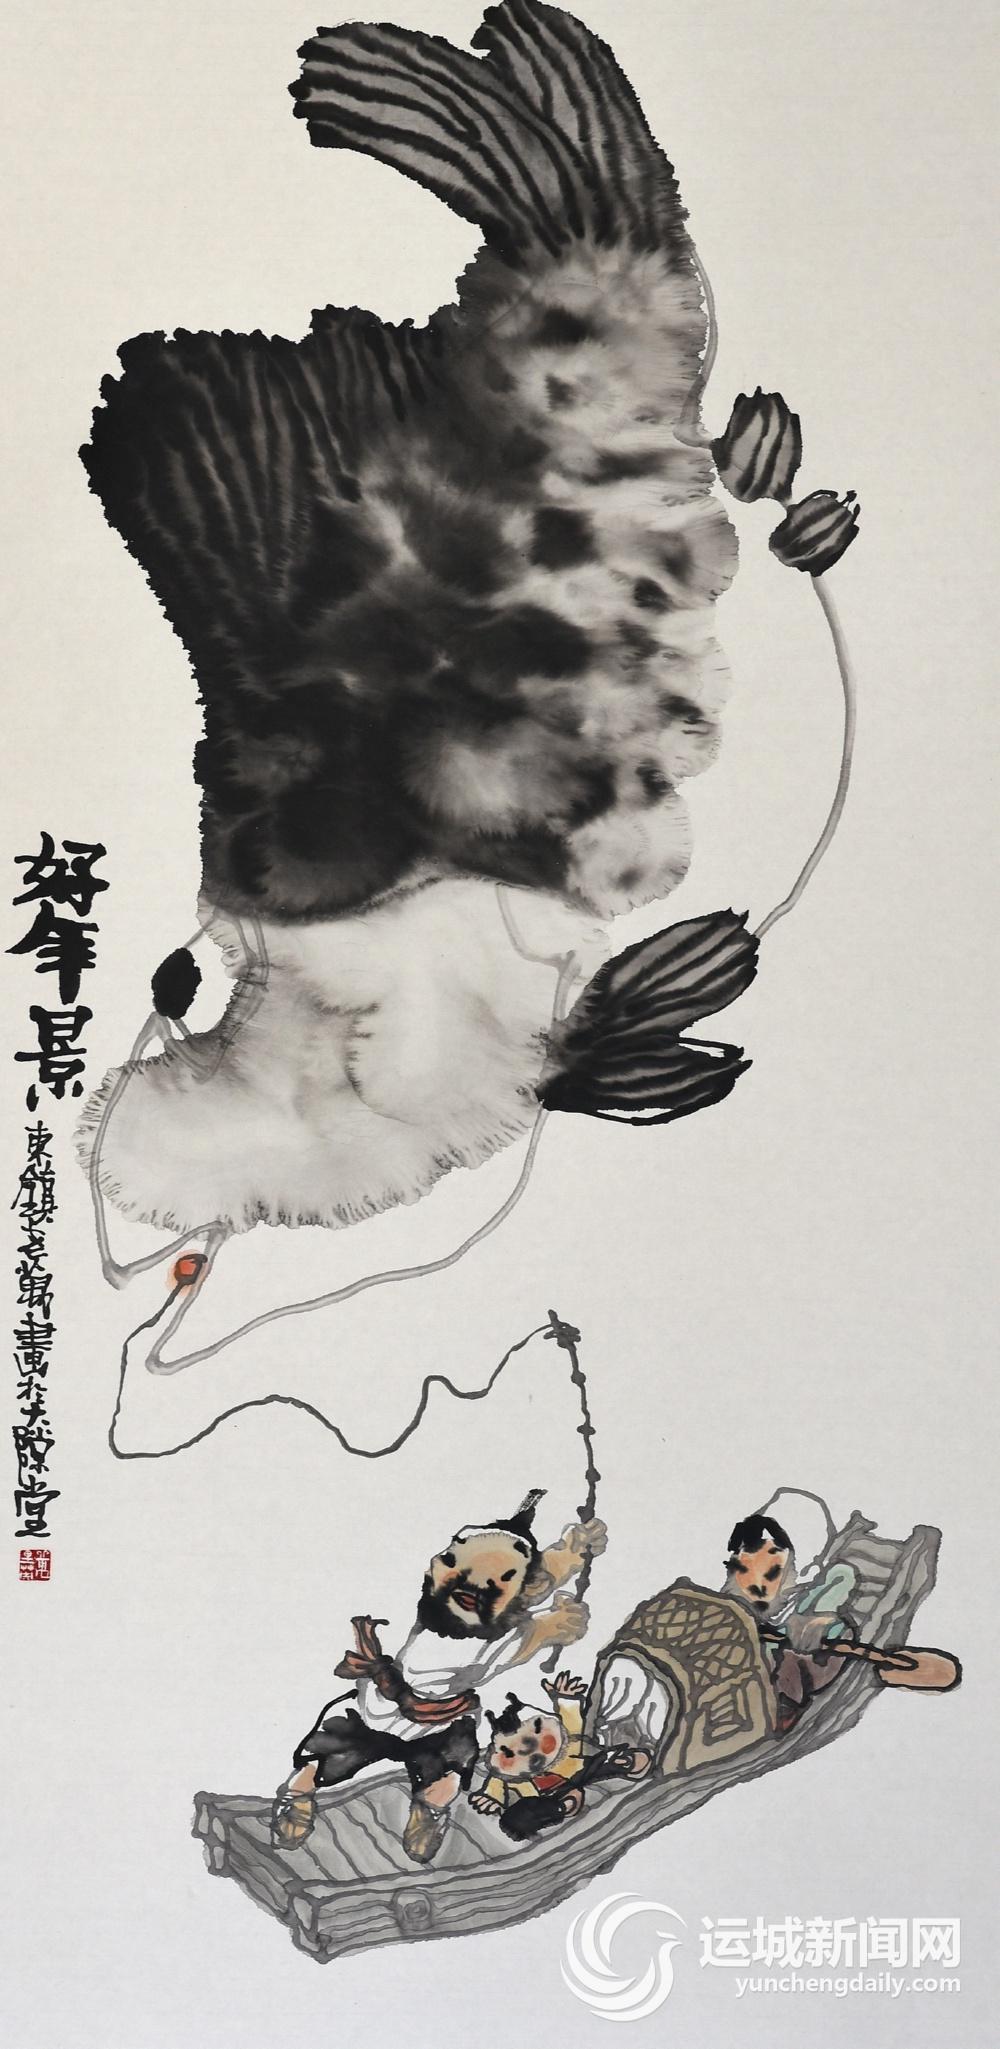 好年景
東嶺老歸畫於大隙堂
运城新闻网
yunchengdaily.com